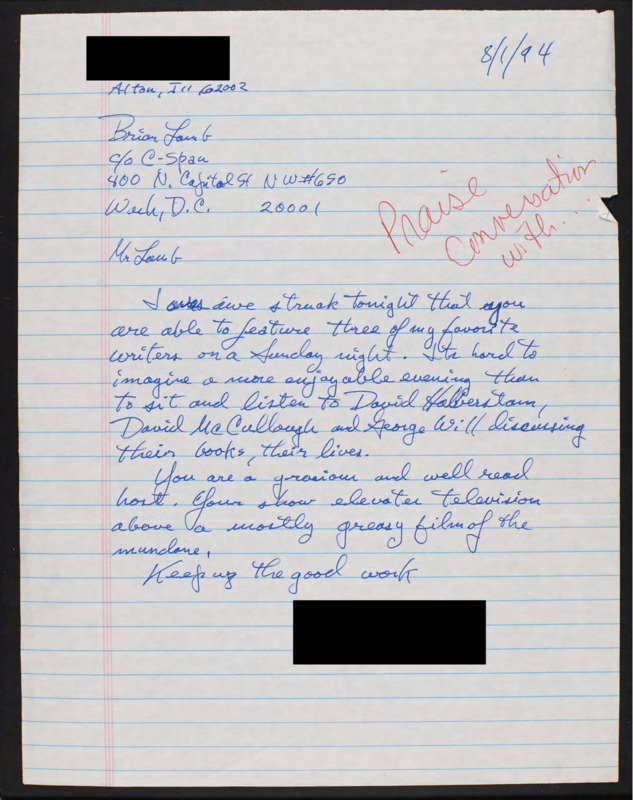 8/1/94
Alton, Ill 62002
Brian Lamb
c/o C-Span
400 N. Capitol St NW #650
Wash, D.C. 20001
Praise
Conversation
with...
Mr Lamb
I awe struck tonight that you
are able to feature three of my favorite
writers on a Sunday night. Its hard to
imagine a more enjoyable evening than
to sit and listen to David Halberstam,
David McCullough and George Will discussing
their books, their lives.
You are a gracious and well read
host. Your show elevates television
above a mostly greasy film of the
mundane.
Keep up the good work